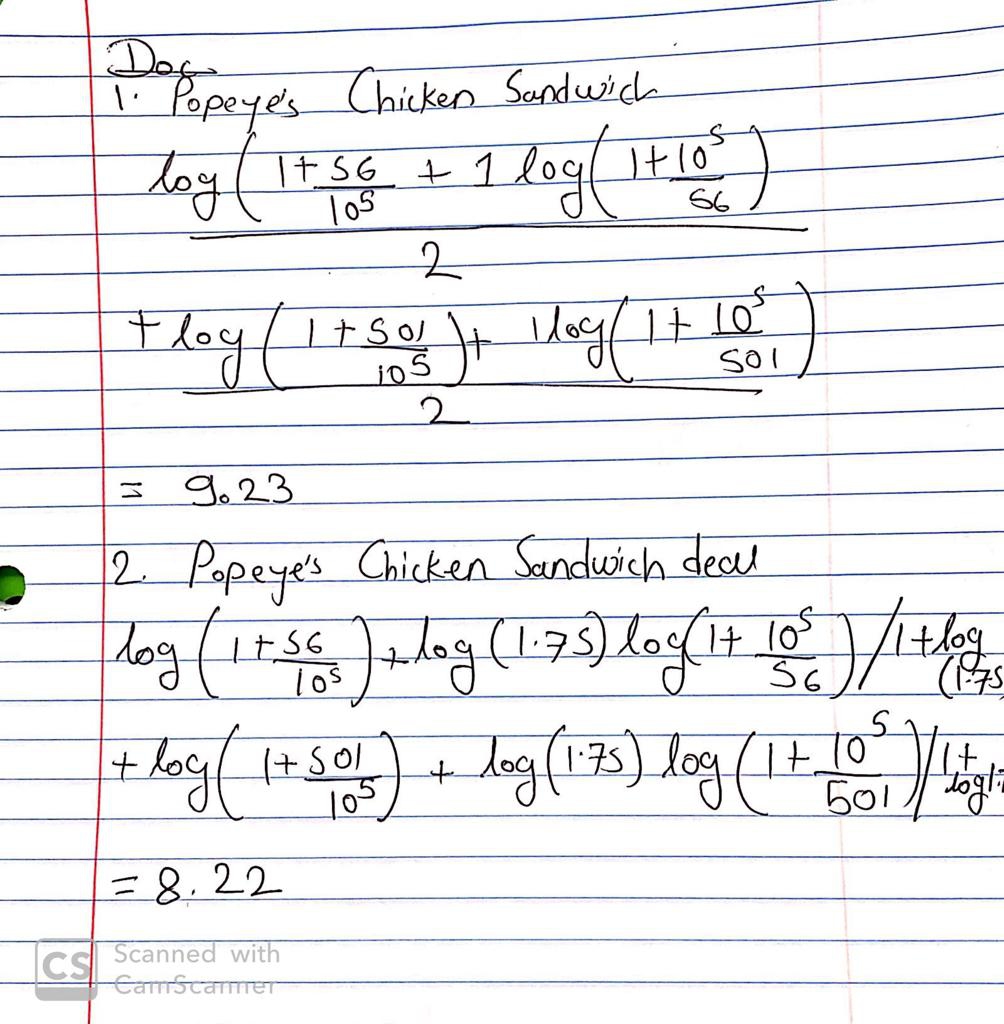 Doc
1. Popeye's Chicken Sandwich
log ( 1+56/10^5 + 1 log( 1+10^5/56 )
2
+ log ( 1+501/10^5 ) + 1log( 1+ 10^5/501 )
2
= 9.23
2. Popeye's Chicken Sandwich deal
log ( 1+56/10^5 ) + log (1.75) log( 1+ 10^5/56 ) / 1+log (1.75
+ log( 1+501/10^5 ) + log (1.75) log ( 1+ 10^5/501 ) / 1+ log1.7
= 8.22
CS Scanned with
CamScanner